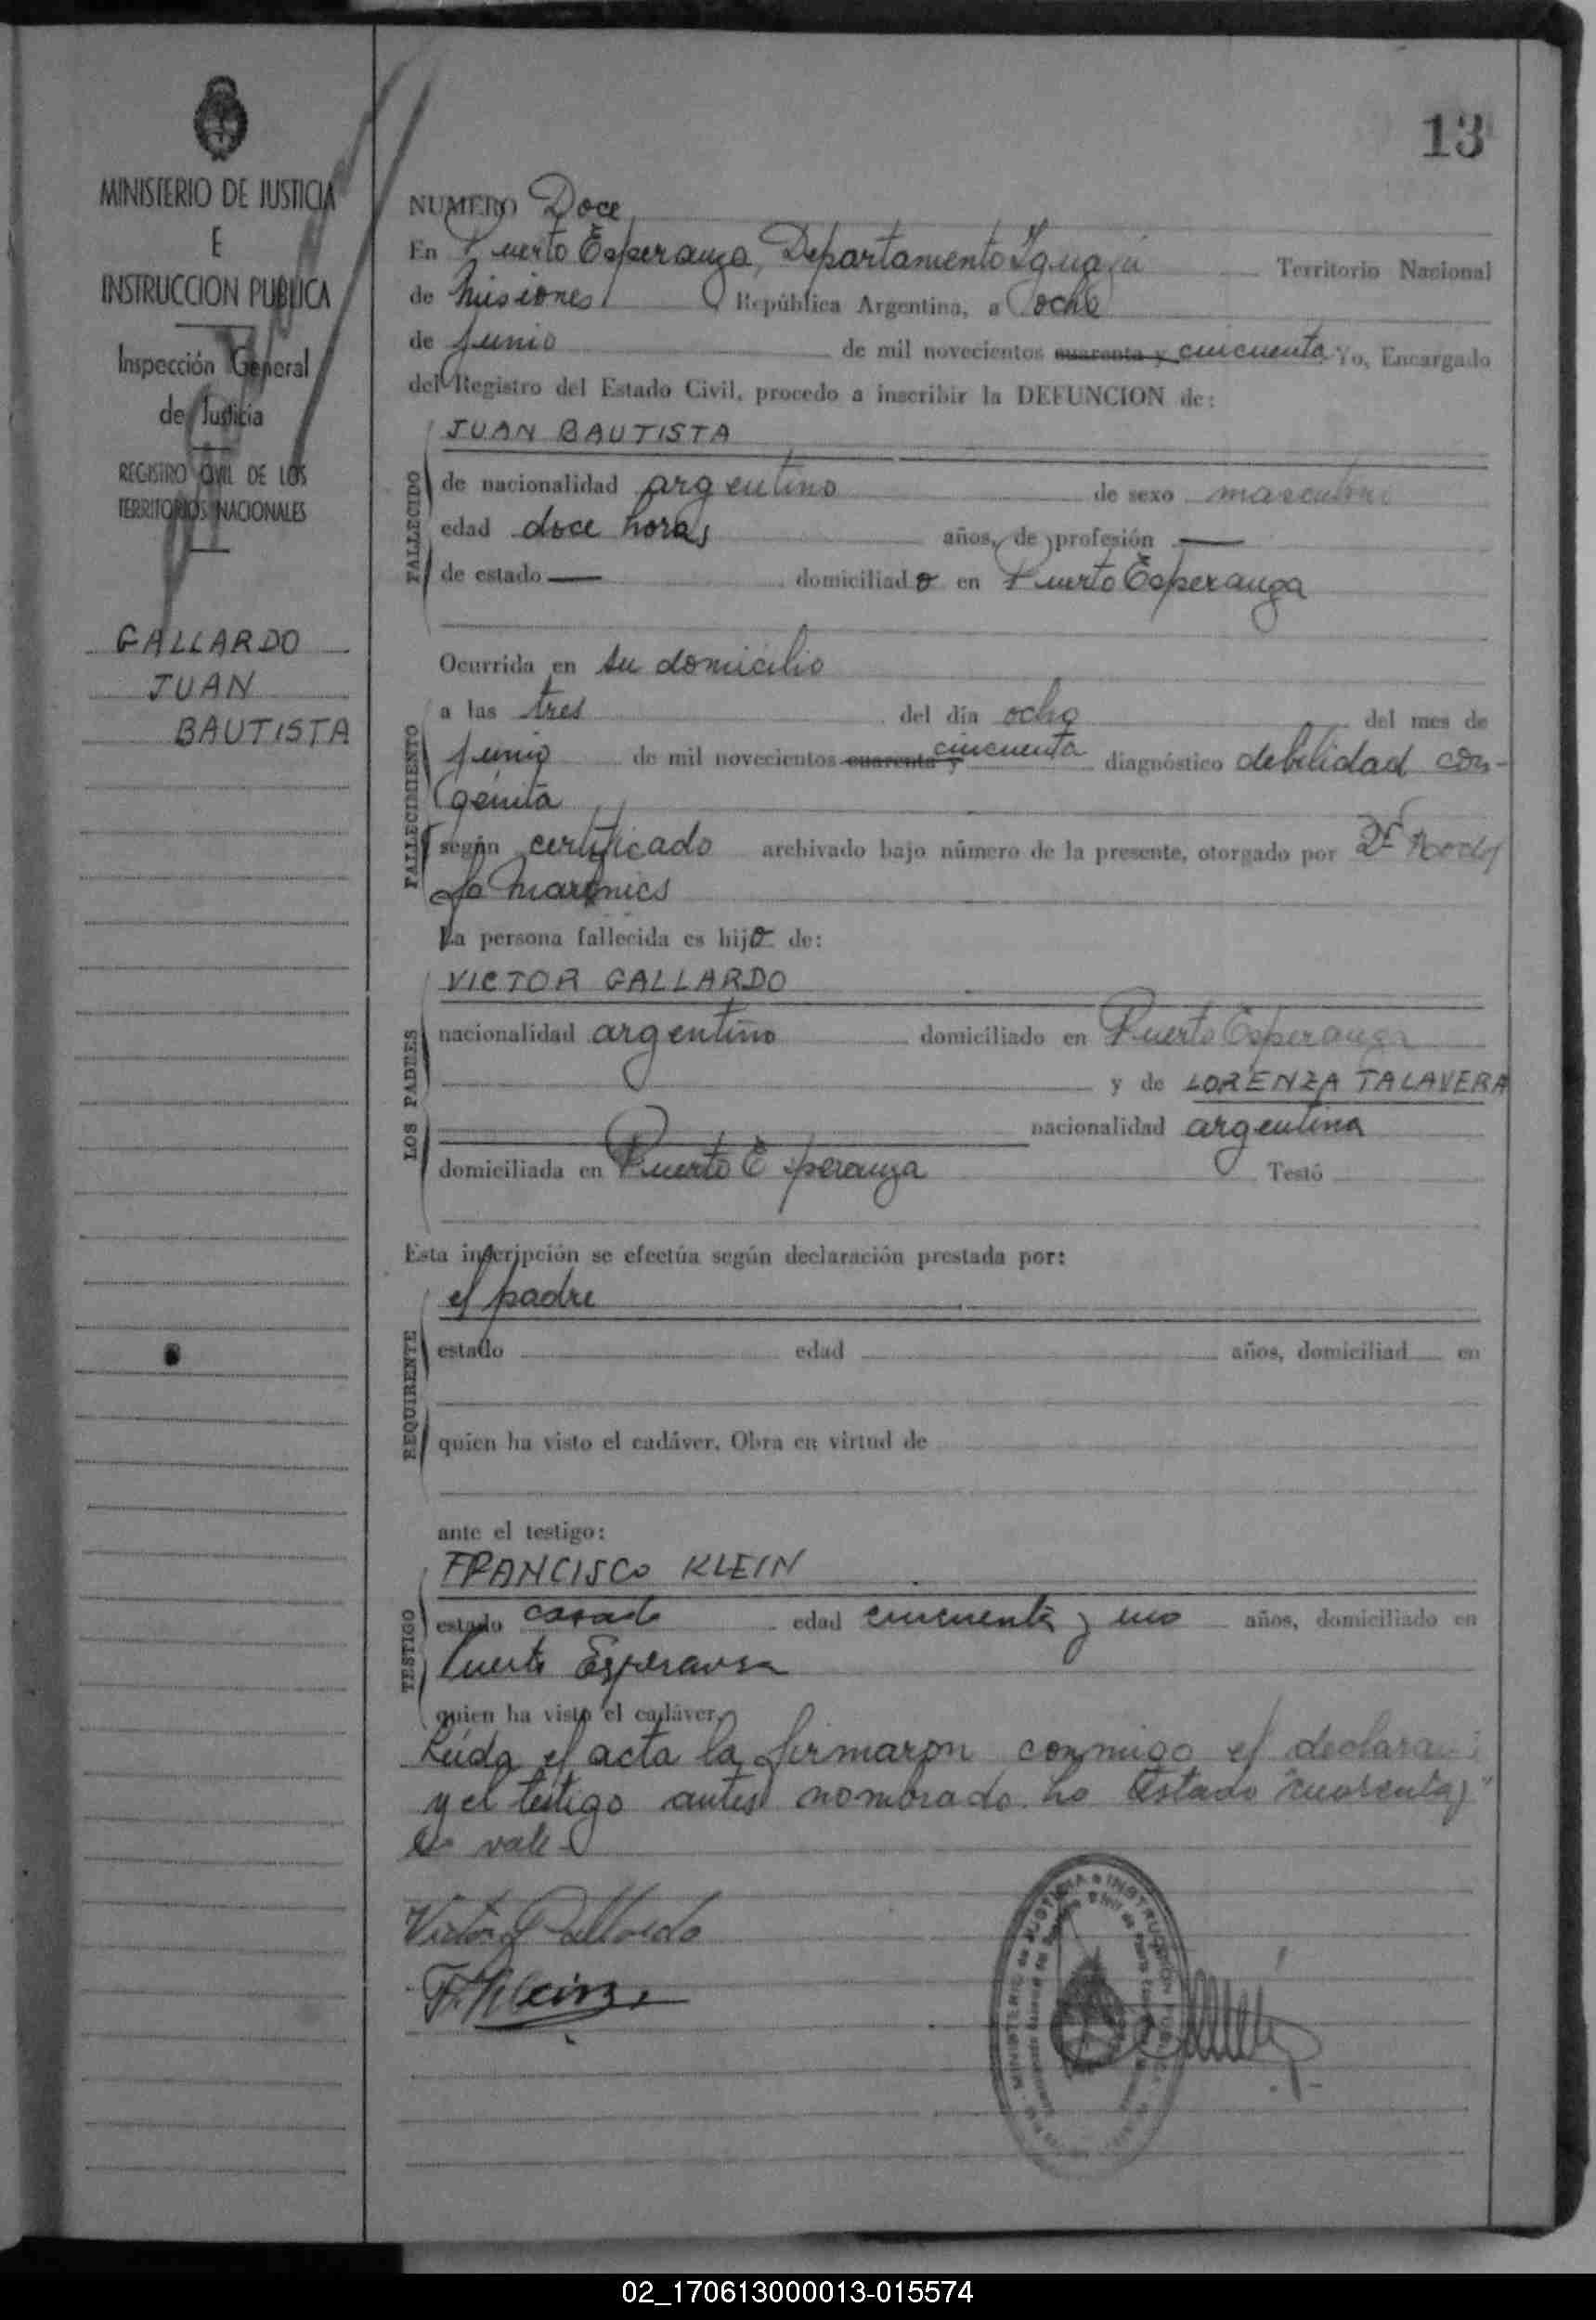 13
MINISTERIO DE JUSTICIA
E
INSTRUCCION PUBLICA
Inspección General
de Justicia
REGISTRO CIVIL DE LOS
TERRITORIOS NACIONALES
GALLARDO
JUAN
BAUTISTA
NUMERO Doce
En Puerto Esperanza, Departamento Iguazú Territorio Nacional
de Misiones República Argentina, a ocho
de junio de mil novecientos cuarenta y cincuenta Yo, Encargado
del Registro del Estado Civil, procedo a inscribir la DEFUNCION de:
JUAN BAUTISTA
FALLECIDO
de nacionalidad argentino de sexo masculino
edad doce horas años, de profesión —
de estado — domiciliado en Puerto Esperanza
Ocurrida en su domicilio
a las tres del día ocho del mes de
FALLECIMIENTO
junio de mil novecientos cuarenta y cincuenta diagnóstico debilidad con-
genita
según certificado archivado bajo número de la presente, otorgado por Dr
La persona fallecida es hijo de:
VICTOR GALLARDO
LOS PADRES
nacionalidad argentino domiciliado en Puerto Esperanza
y de LORENZA TALAVERA
nacionalidad argentina
domiciliada en Puerto Esperanza Testó
Esta inscripción se efectúa según declaración prestada por:
el padre
REQUIRENTE
estado edad años, domiciliad en
quien ha visto el cadáver. Obra en virtud de
ante el testigo:
FRANCISCO KLEIN
TESTIGO
estado casado edad cincuenta y uno años, domiciliado en
Puerto Esperansa
quien ha visto el cadáver.
Leída el acta la firmaron conmigo el
y el testigo antes nombrado. Lo testado "cuarenta y"
no vale-
Victor Gallardo
F. Klein
02_170613000013-015574